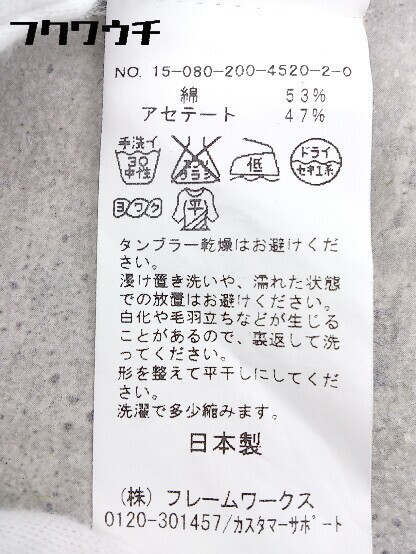 フクワウチ
NO. 15-080-200-4520-2-0
綿 53%
アセテート 47%
手洗イ
30
中性
エンソ
サラシ
低
ドライ
セキユ系
ヨワク
平
タンブラー乾燥はお避けくだ
さい。
浸け置き洗いや、濡れた状態
での放置はお避けください。
白化や毛羽立ちなどが生じる
ことがあるので、裏返して洗
ってください。
形を整えて平干しにしてくだ
さい。
洗濯で多少縮みます。
日本製
(株) フレームワークス
0120-301457/カスタマーサポート